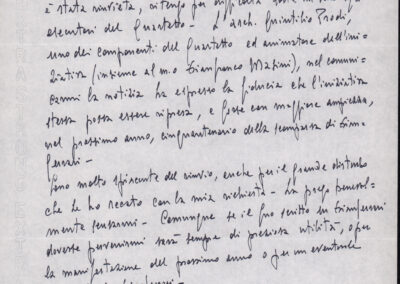 è stata rinviata, ritengo per difficoltà
esecutori del Quartetto - L'arch. Quintilio Prodi,
uno dei componenti del Quartetto ed animatore dell'ini=
ziativa (insieme al m.o Gianfranco Masini), nel comuni=
carmi la notizia ha espresso la fiducia che l'iniziativa
stessa possa essere ripresa, e forse con maggiore ampiezza,
nel prossimo anno, cinquantenario della scomparsa di
Ferrari -
Sono molto spiacente del rinvio, anche per il grande disturbo
che Le ho recato con la mia richiesta - La prego benevol=
mente scusarmi - Comunque se il Suo scritto su
dovesse pervenirmi sarà sempre di preziosa utilità, o per
la manifestazione del prossimo anno o per un eventuale